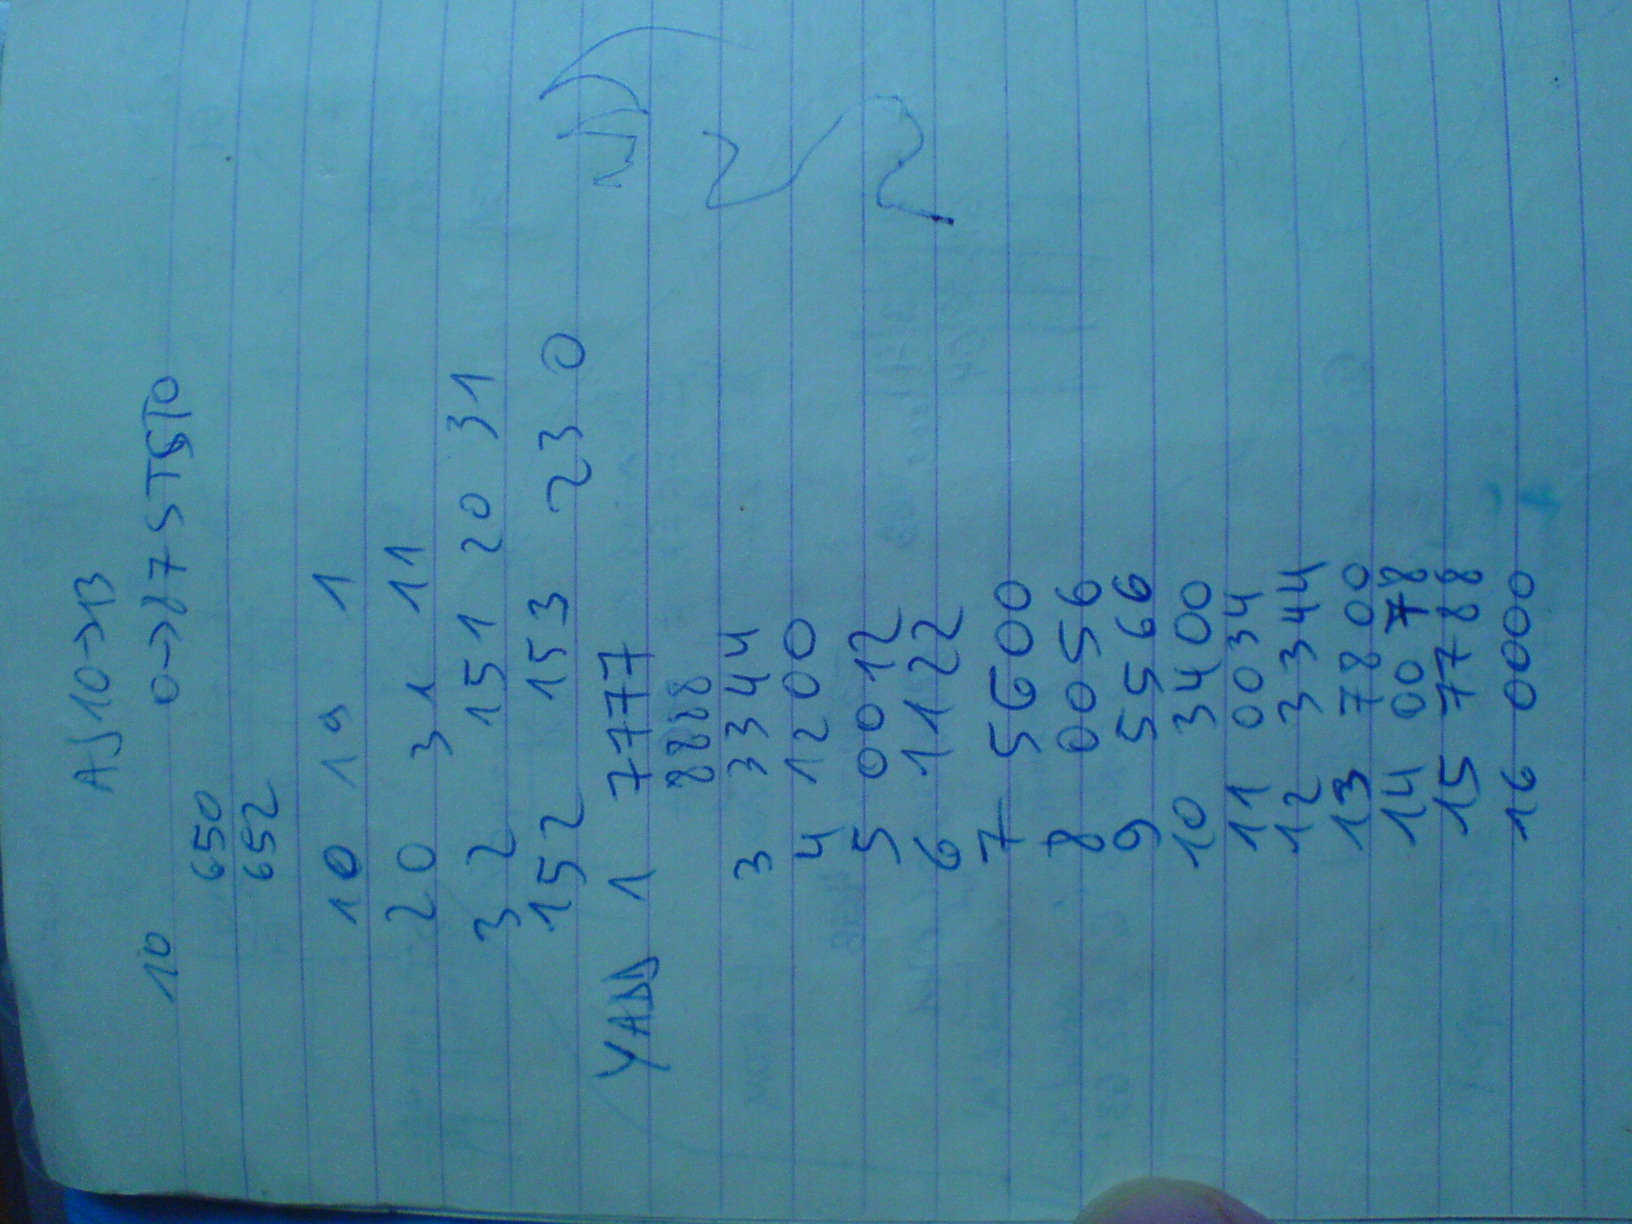 AS10->13
10 0->875T5T0
650
652
10 19 1
20 31 11
32 151 20 31
152 153 23 0
YADD 1 7777
8888
3 3344
4 1200
5 0012
6 1122
7 5600
8 0056
9 5566
10 3400
11 0034
12 3344
13 7800
14 0078
15 7788
16 0000